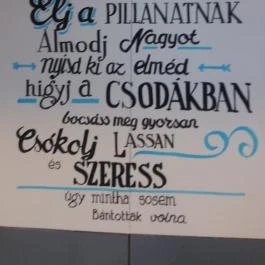 Élj a PILLANATNAK
Álmodj Nagyot
nyisd ki az elméd
higyj a CSODÁKBAN
bocsáss meg gyorsan
Csókolj LASSAN
és
SZERESS
úgy mintha sosem
Bántottak volna